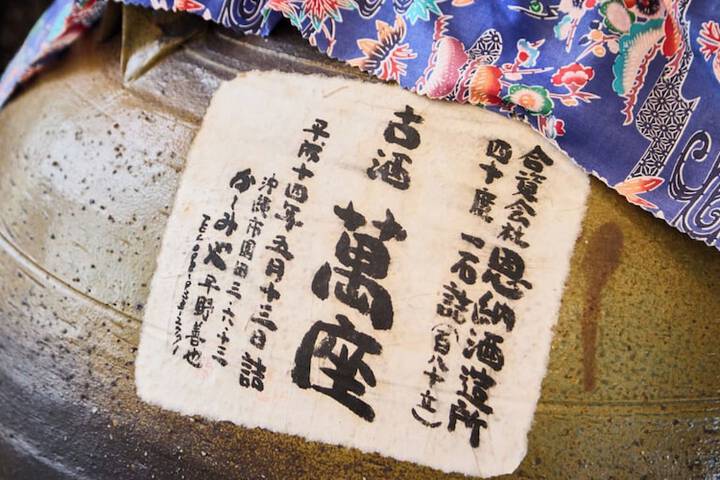 合資会社 恩納酒造所
四十度 一石詰(百八十立)
古酒 萬座
平成十四年五月十三日詰
沖縄市園田三・六・十三
平野善也